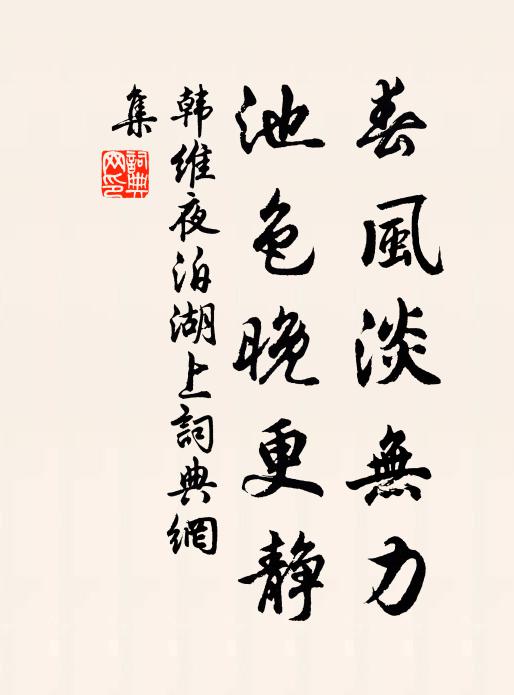 春風淡無力
池色晚更靜
韩維夜泊湖上詞典網
集
詞典
网印